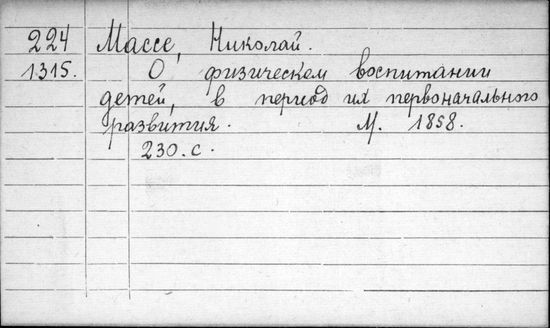 224 Массе, Николай.
1315. О физическом воспитании
детей, в период их первоначального
развития. М. 1858.
230. с.